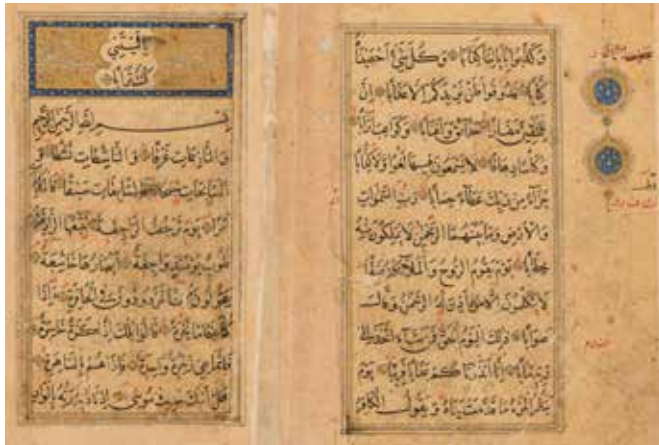 وَكَذَّبُوا بِآيَاتِنَا كِذَّابًا وَكُلَّ شَيْءٍ أَحْصَيْنَاهُ
كِتَابًا فَذُوقُوا فَلَنْ نَزِيدَكُمْ إِلَّا عَذَابًا إِنَّ
لِلْمُتَّقِينَ مَفَازًا حَدَائِقَ وَأَعْنَابًا وَكَوَاعِبَ أَتْرَابًا
وَكَأْسًا دِهَاقًا لَا يَسْمَعُونَ فِيهَا لَغْوًا وَلَا كِذَّابًا
جَزَاءً مِنْ رَبِّكَ عَطَاءً حِسَابًا رَبِّ السَّمٰوَاتِ
وَالْأَرْضِ وَمَا بَيْنَهُمَا الرَّحْمٰنِ لَا يَمْلِكُونَ مِنْهُ
خِطَابًا يَوْمَ يَقُومُ الرُّوحُ وَالْمَلَائِكَةُ صَفًّا
لَا يَتَكَلَّمُونَ إِلَّا مَنْ أَذِنَ لَهُ الرَّحْمٰنُ وَقَالَ
صَوَابًا ذٰلِكَ الْيَوْمُ الْحَقُّ فَمَنْ شَاءَ اتَّخَذَ إِلَى
رَبِّهِ مَآبًا إِنَّا أَنْذَرْنَاكُمْ عَذَابًا قَرِيبًا يَوْمَ
يَنْظُرُ الْمَرْءُ مَا قَدَّمَتْ يَدَاهُ وَيَقُولُ الْكَافِرُ
يَا لَيْتَنِي
كُنْتُ تُرَابًا
بِسْمِ اللهِ الرَّحْمٰنِ الرَّحِيمِ
وَالنَّازِعَاتِ غَرْقًا وَالنَّاشِطَاتِ نَشْطًا وَ
السَّابِحَاتِ سَبْحًا فَالسَّابِقَاتِ سَبْقًا فَالْمُدَبِّرَاتِ
أَمْرًا يَوْمَ تَرْجُفُ الرَّاجِفَةُ تَتْبَعُهَا الرَّادِفَةُ
قُلُوبٌ يَوْمَئِذٍ وَاجِفَةٌ أَبْصَارُهَا خَاشِعَةٌ
يَقُولُونَ أَئِنَّا لَمَرْدُودُونَ فِي الْحَافِرَةِ أَإِذَا
كُنَّا عِظَامًا نَخِرَةً قَالُوا تِلْكَ إِذًا كَرَّةٌ خَاسِرَةٌ
فَإِنَّمَا هِيَ زَجْرَةٌ وَاحِدَةٌ فَإِذَا هُمْ بِالسَّاهِرَةِ
هَلْ أَتَاكَ حَدِيثُ مُوسَى إِذْ نَادَاهُ رَبُّهُ بِالْوَادِ